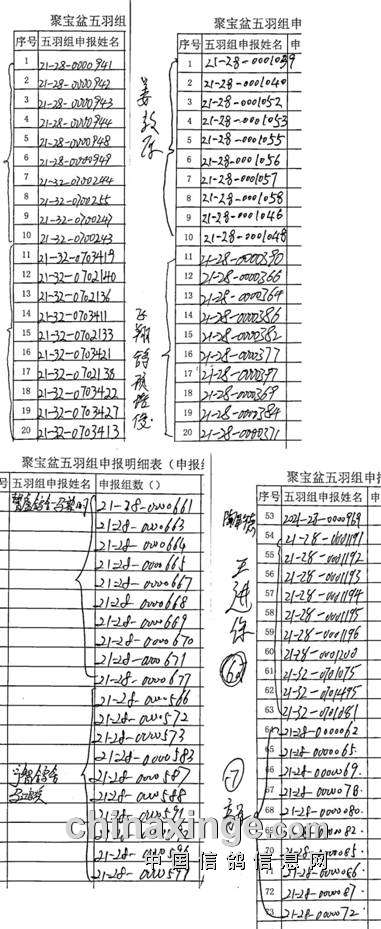 聚宝盆五羽组
序号 五羽组申报姓名
1 21-28-0000941
2 21-28-0000942
3 21-28-0000943
4 21-28-0000944
5 21-28-0000948
6 21-28-0000949
7 21-32-0700244
8 21-32-0700255
9 21-32-0700247
10 21-32-0700243
11 21-32-0703419
12 21-32-0702140
13 21-32-0702136
14 21-32-0703411
15 21-32-0702133
16 21-32-0703421
17 21-32-0702138
18 21-32-0703422
19 21-32-0703427
20 21-32-0703413
聚宝盆五羽组申
序号 五羽组申报姓名 申
1 21-28-0001039
2 21-28-0001040
3 21-28-0001052
4 21-28-0001053
5 21-28-0001055
6 21-28-0001056
7 21-28-0001057
8 21-28-0001058
9 21-28-0001046
10 21-28-0001048
11 21-28-0000390
12 21-28-0000366
13 21-28-0000364
14 21-28-0000386
15 21-28-0000382
16 21-28-0000377
17 21-28-0000397
18 21-28-0000369
19 21-28-0000384
20 21-28-0000371
聚宝盆五羽组申报明细表（申报
五羽组申报姓名 申报组数（）
21-28-0000661
21-28-0000663
21-28-0000664
21-28-0000665
21-28-0000667
21-28-0000668
21-28-0000669
21-28-0000670
21-28-0000671
21-28-0000677
21-28-0000566
21-28-0000572
21-28-0000573
21-28-0000583
21-28-0000587
21-28-0000588
21-28-0000591
21-28-0000596
21-28-0000597
聚宝盆五羽组申报
序号 五羽组申报姓名 申
53 2021-28-0000969
54 21-28-0001191
55 21-28-0001192
56 21-28-0001193
57 21-28-0001194
58 21-28-0001195
59 21-28-0001196
60 21-28-0001200
61 21-32-0701075
62 21-32-0701495
63 21-32-0701081
64 21-28-0000062
65 21-28-0000065
66 21-28-0000069
67 21-28-0000078
68 21-28-0000080
69 21-28-0000082
70 21-28-0000085
71 21-28-0000086
72 21-28-0000087
73 21-28-0000072
王进保
chinaxinge.com
中国信鸽信息网